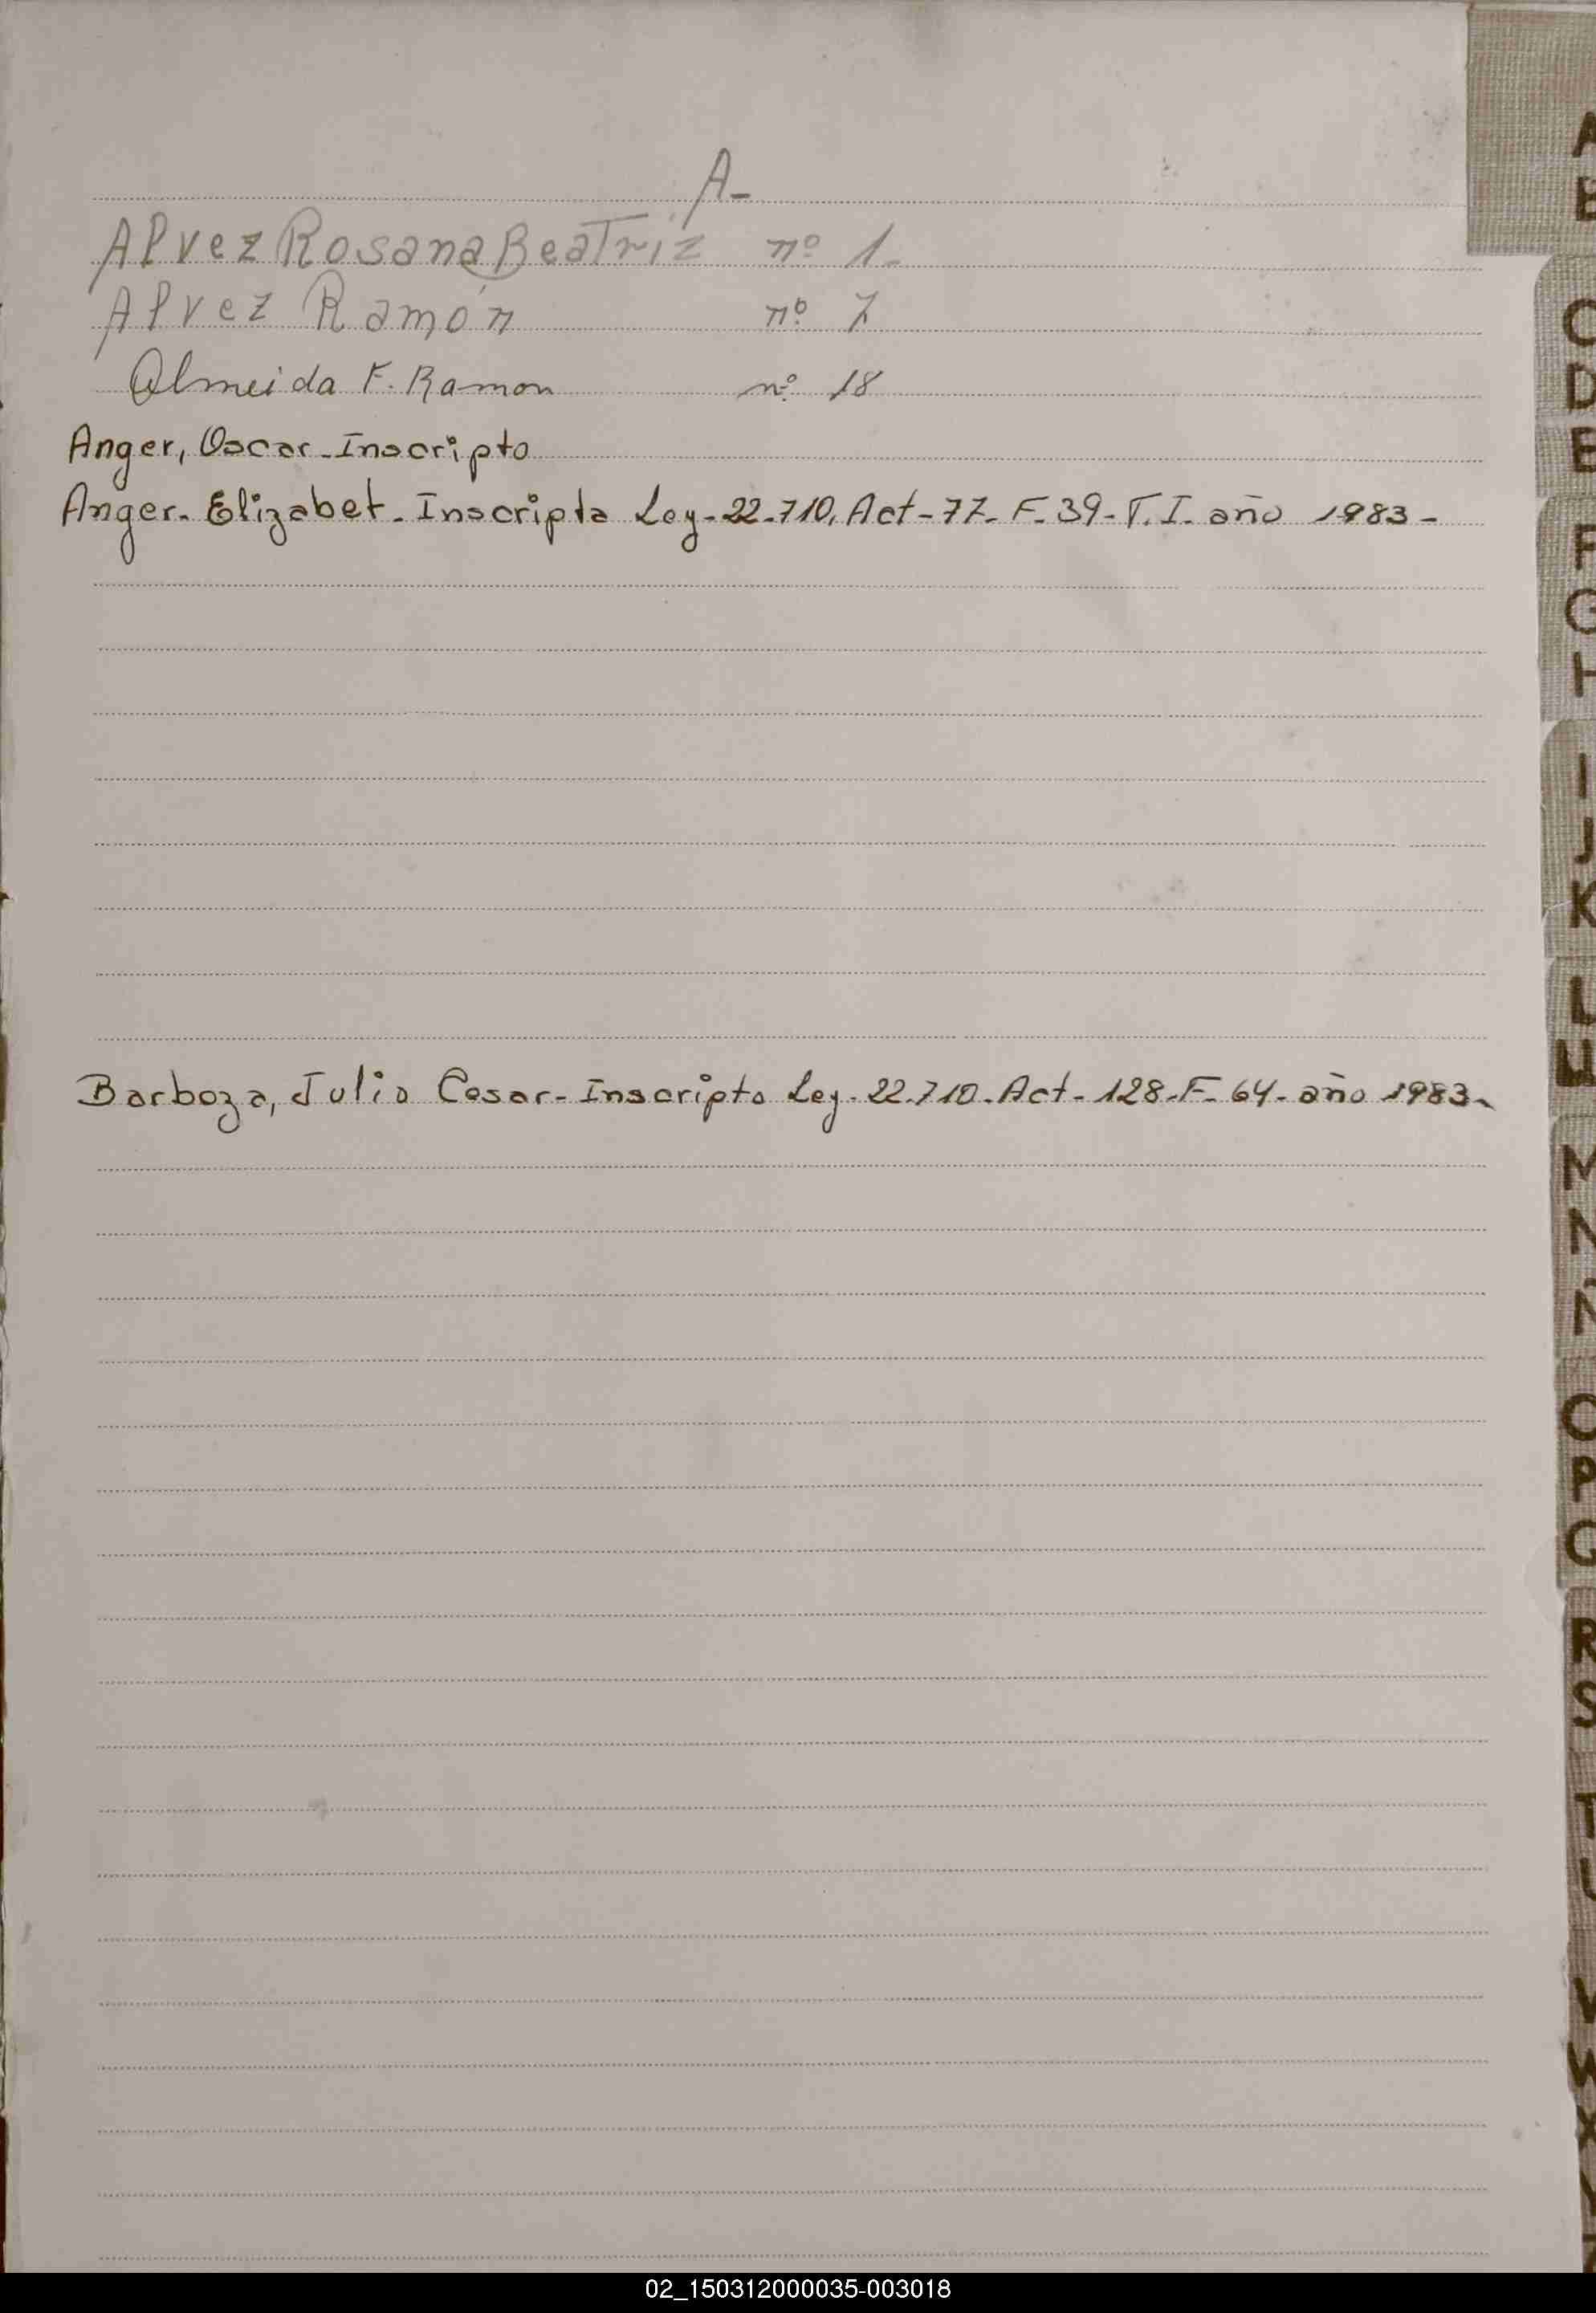 A-
Alvez Rosana Beatriz nº 1-
Alvez Ramón nº 7
Almeida F. Ramon nº 18
Anger, Oscar - Inscripto
Anger - Elizabet - Inscripta Ley - 22.710, Act - 77 - F - 39 - T. I. año 1983 -
Barboza, Julio Cesar - Inscripto Ley - 22.710 - Act - 128 - F - 64 - año 1983 -
A
B
C
D
E
F
G
H
I
J
K
L
LL
M
N
Ñ
O
P
Q
R
S
T
U
V
W
X
Y
02_150312000035-003018